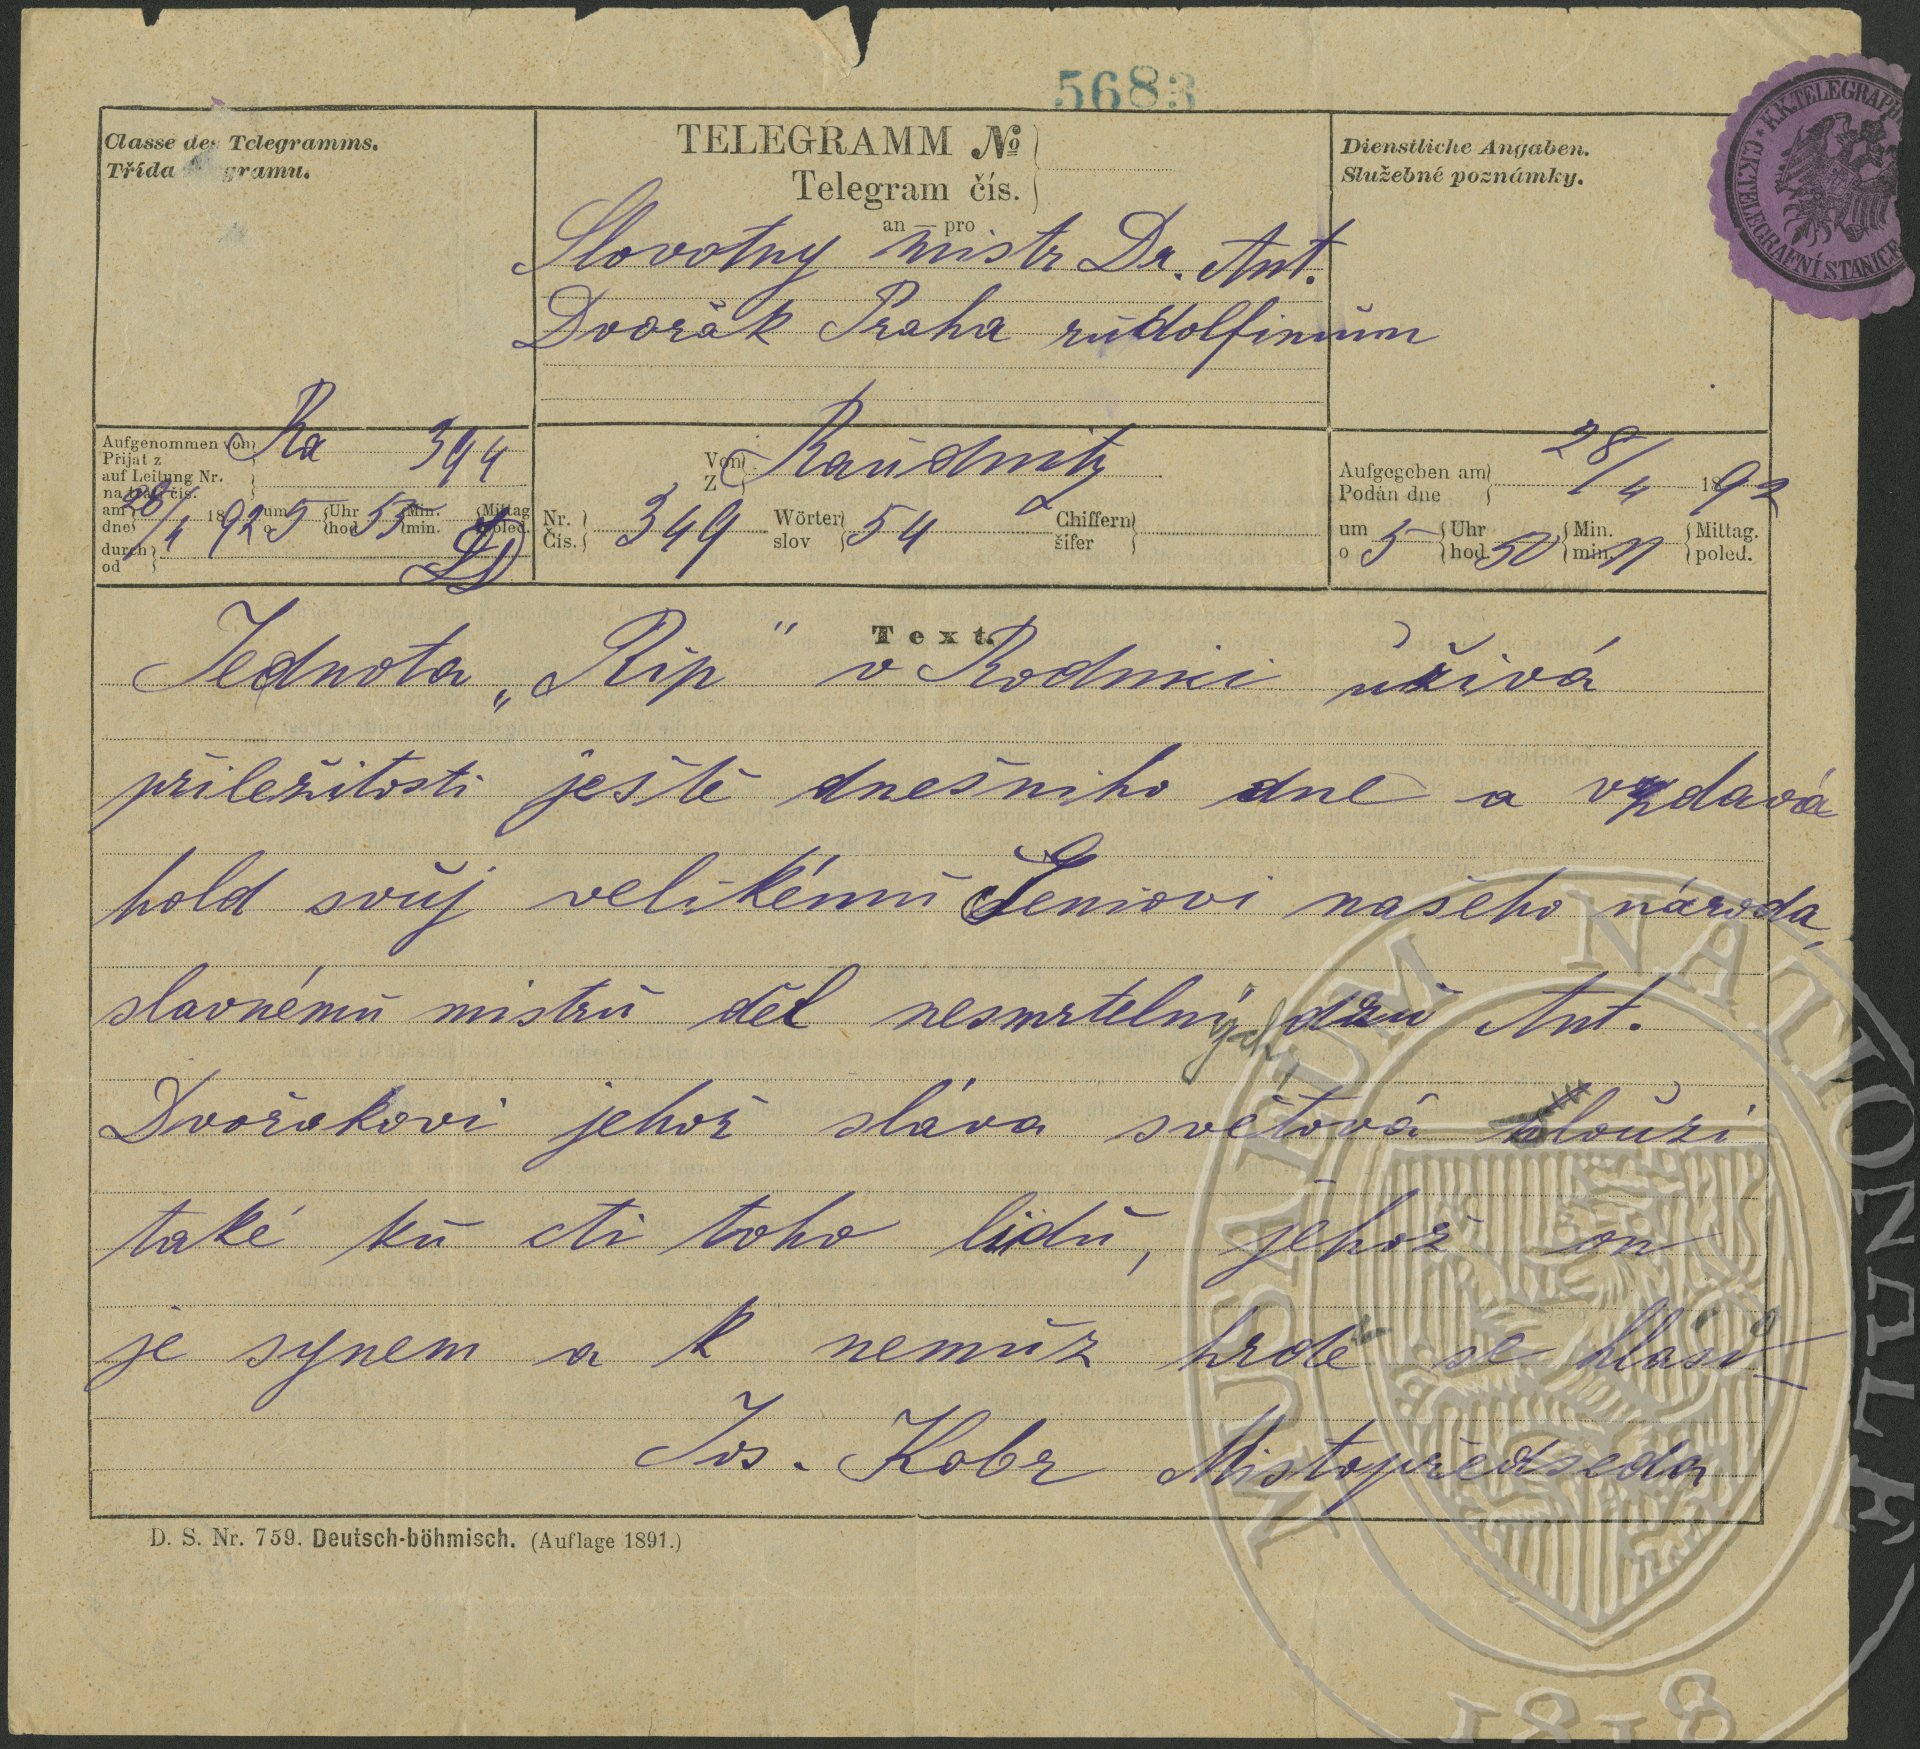 5683
Classe des Telegramms.
Třída gramu.
TELEGRAMM No
Telegram čís.
an — pro
Dienstliche Angaben.
Služebné poznámky.
K.K. TELEGRAPH
C.K. TELEGRAFNÍ STANICE
Slovotny mistr Dr. Ant.
Dvořák Praha rudolfinum
Aufgenommen von Ra 394
Přijat z
auf Leitung Nr.
na trati čís.
am 28/4 1892 um 5 Uhr 55 Min. Mittag
dne o hod. min. poled.
durch
od
Von Raudnitz
Z
Nr. 349 Wörter 54 Chiffern
Čís. slov šifer
Aufgegeben am 28/4 1892
Podán dne
um 5 Uhr 50 Min. N Mittag.
o hod. min. poled.
Text.
Jednota „Říp" v Rodnici užívá
příležitosti ještě dnešniho dne a vzdává
hold svůj velikému Geniovi našeho národa,
slavnému mistru děl nesmrtelných dru Ant.
Dvořakovi jehož sláva světová slouži
také ku cti toho lidu, jehož on
je synem a k nemuz hrdě se hlásí
Jos. Kobr Mistopředseda
D. S. Nr. 759. Deutsch-böhmisch. (Auflage 1891.)
MUSAEUM NATIONALE
1818